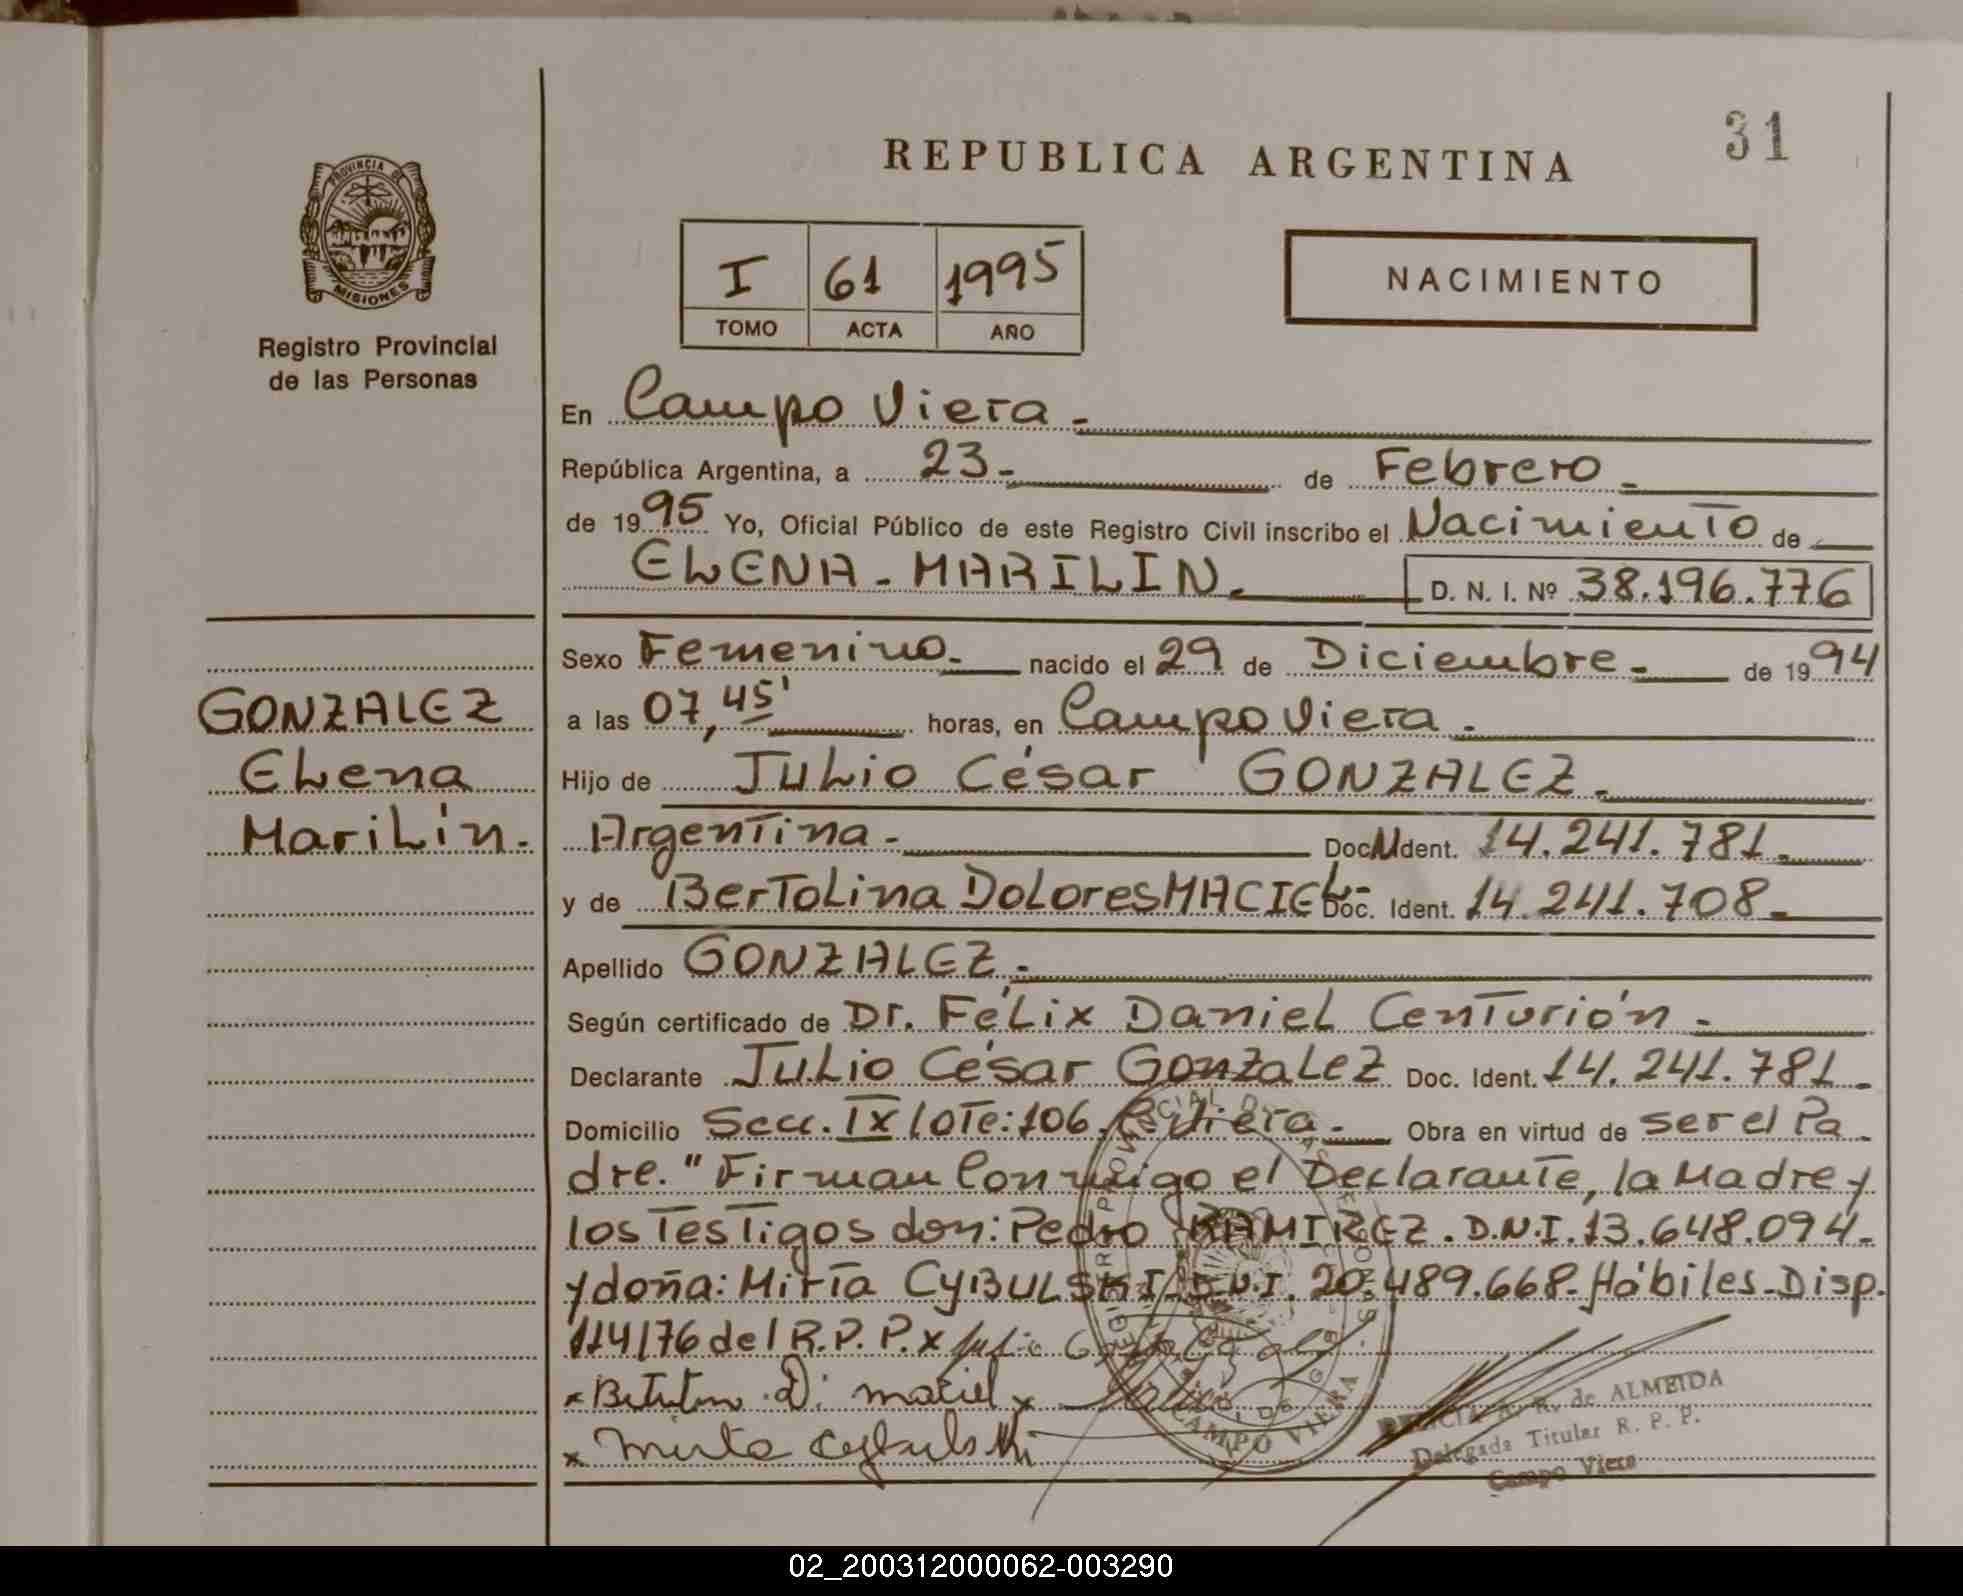 31
REPUBLICA ARGENTINA
PROVINCIA DE
MISIONES
Registro Provincial
de las Personas
I 61 1995
TOMO ACTA AÑO
NACIMIENTO
En Campo Viera-
República Argentina, a 23- de Febrero-
de 1995 Yo, Oficial Público de este Registro Civil inscribo el Nacimiento de
ELENA-MARILIN- D. N. I. Nº 38.196.776
Sexo Femenino- nacido el 29 de Diciembre- de 1994
a las 07,45' horas, en Campo Viera-
Hijo de Julio César GONZALEZ-
Argentina- Doc. Ident. 14.241.781-
y de Bertolina Dolores MACIEL- Doc. Ident. 14.241.708-
Apellido GONZALEZ-
Según certificado de Dr. Félix Daniel Centurión-
Declarante Julio César Gonzalez Doc. Ident. 14.241.781-
Domicilio Secc. IX lote:106. C. Viera- Obra en virtud de ser el Pa-
dre." Firman Conmigo el Declarante, la Madre y
los Testigos don: Pedro RAMIREZ. D.N.I. 13.648.094-
y doña: Mirta CYBULSKI-D.N.I. 20.489.668-Hábiles-Disp.
114/76 del R.P.P.x Julio
x D. maciel x
x Mirta Cybulski
CAMPO VIERA
R. de ALMEIDA
Delegada Titular R. P. P.
Campo Viera
GONZALEZ
Elena
Marilin.
02_200312000062-003290